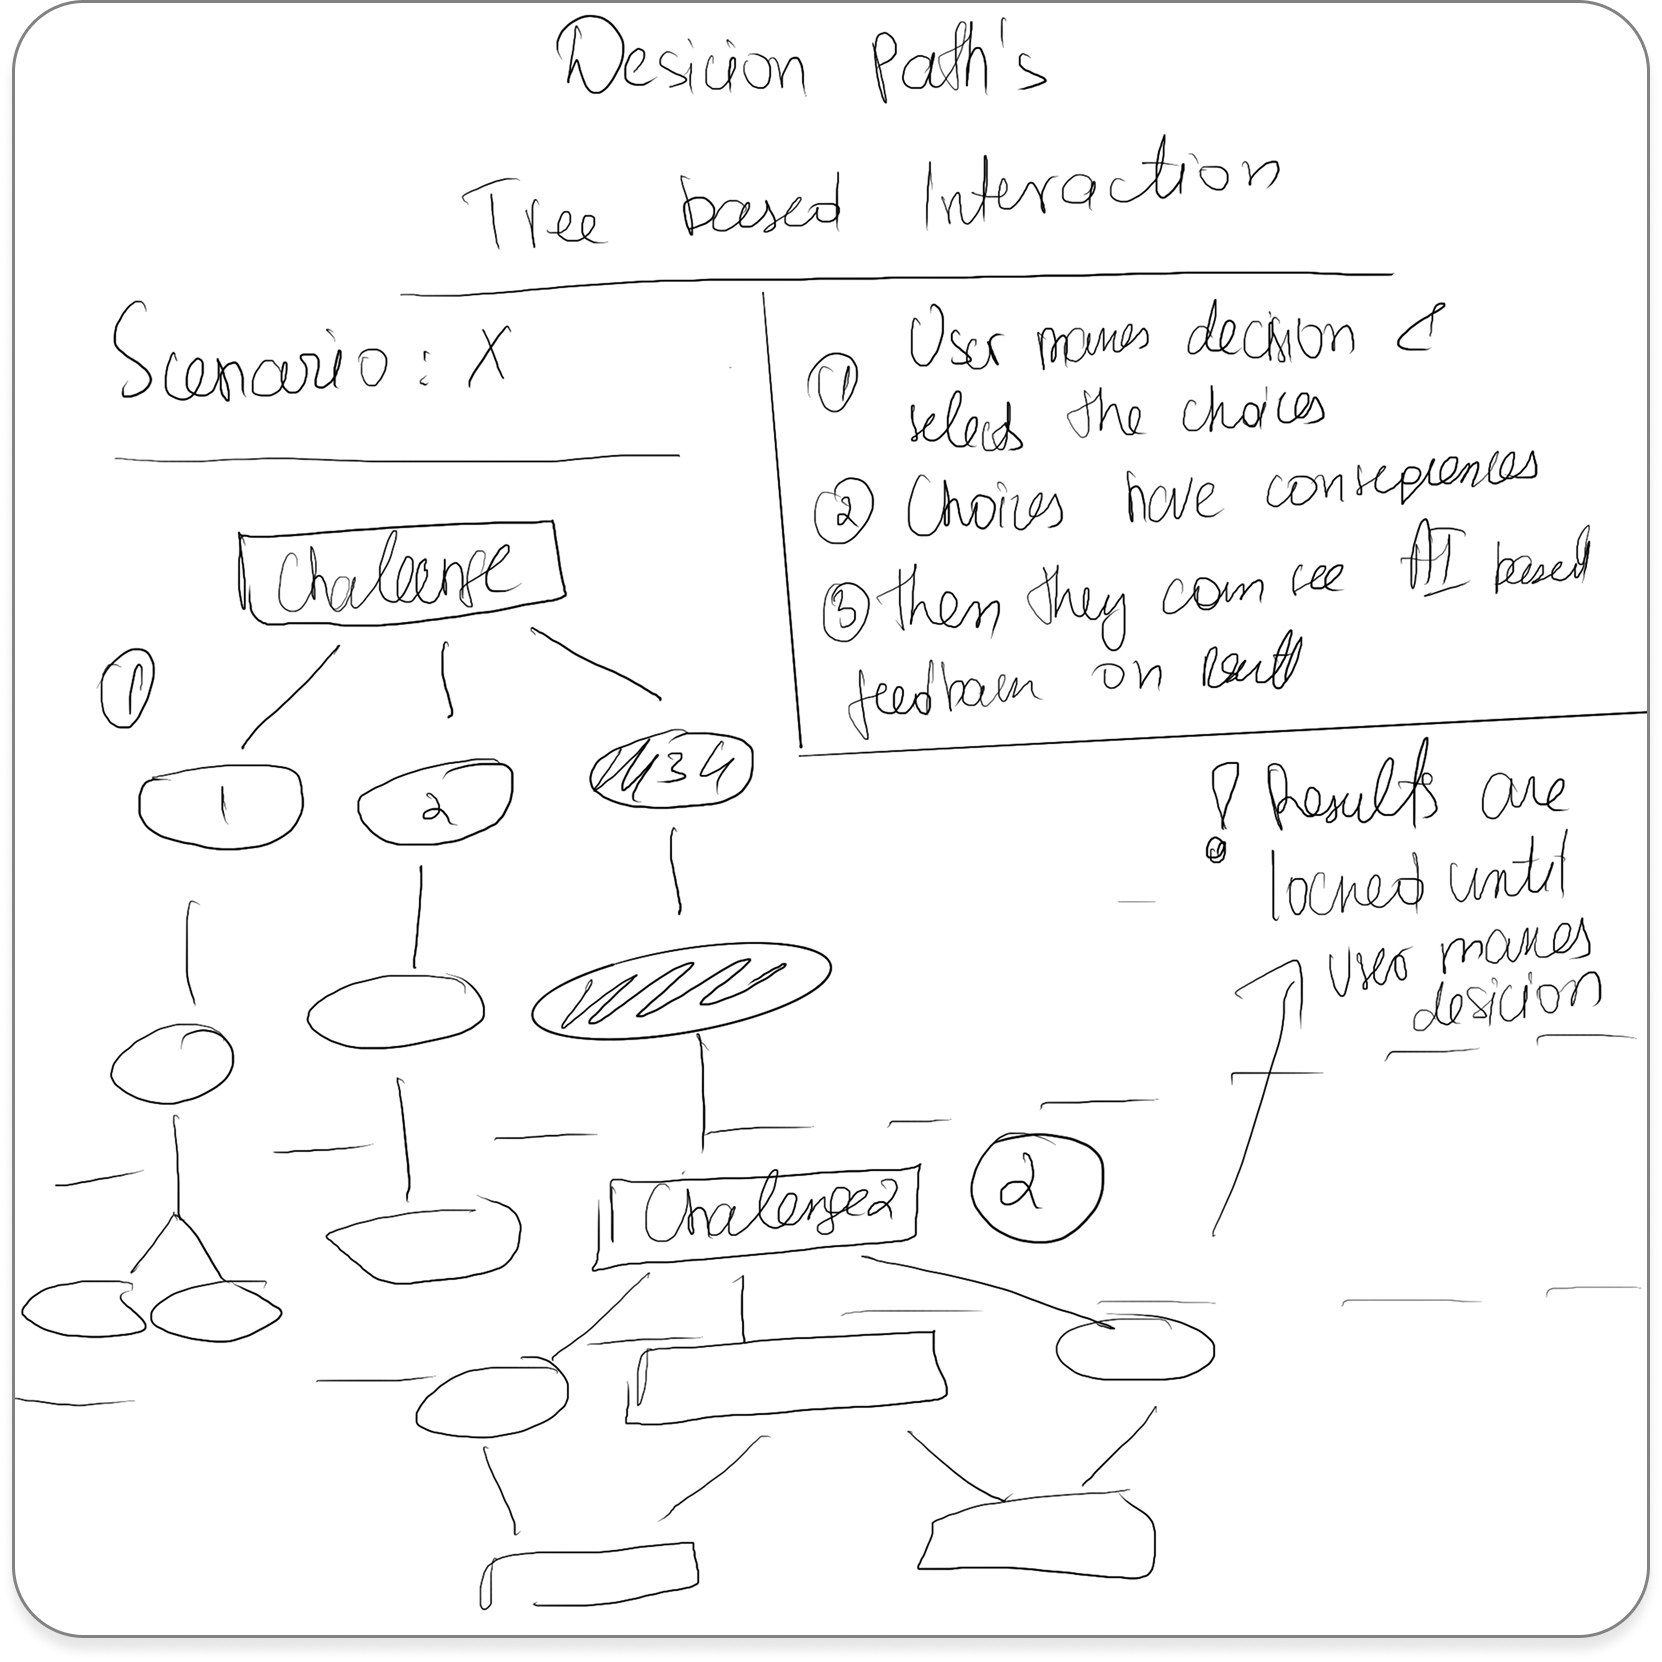 Desicion Path's
Tree based Interaction
Scenario: X
① User makes decision &
selects the choices
② Choices have consequences
③ then they can see AI based
feedback on result
Chaleenge
①
1
2
3
! Results are
locked until
user makes
desicion
Chalenge2
②